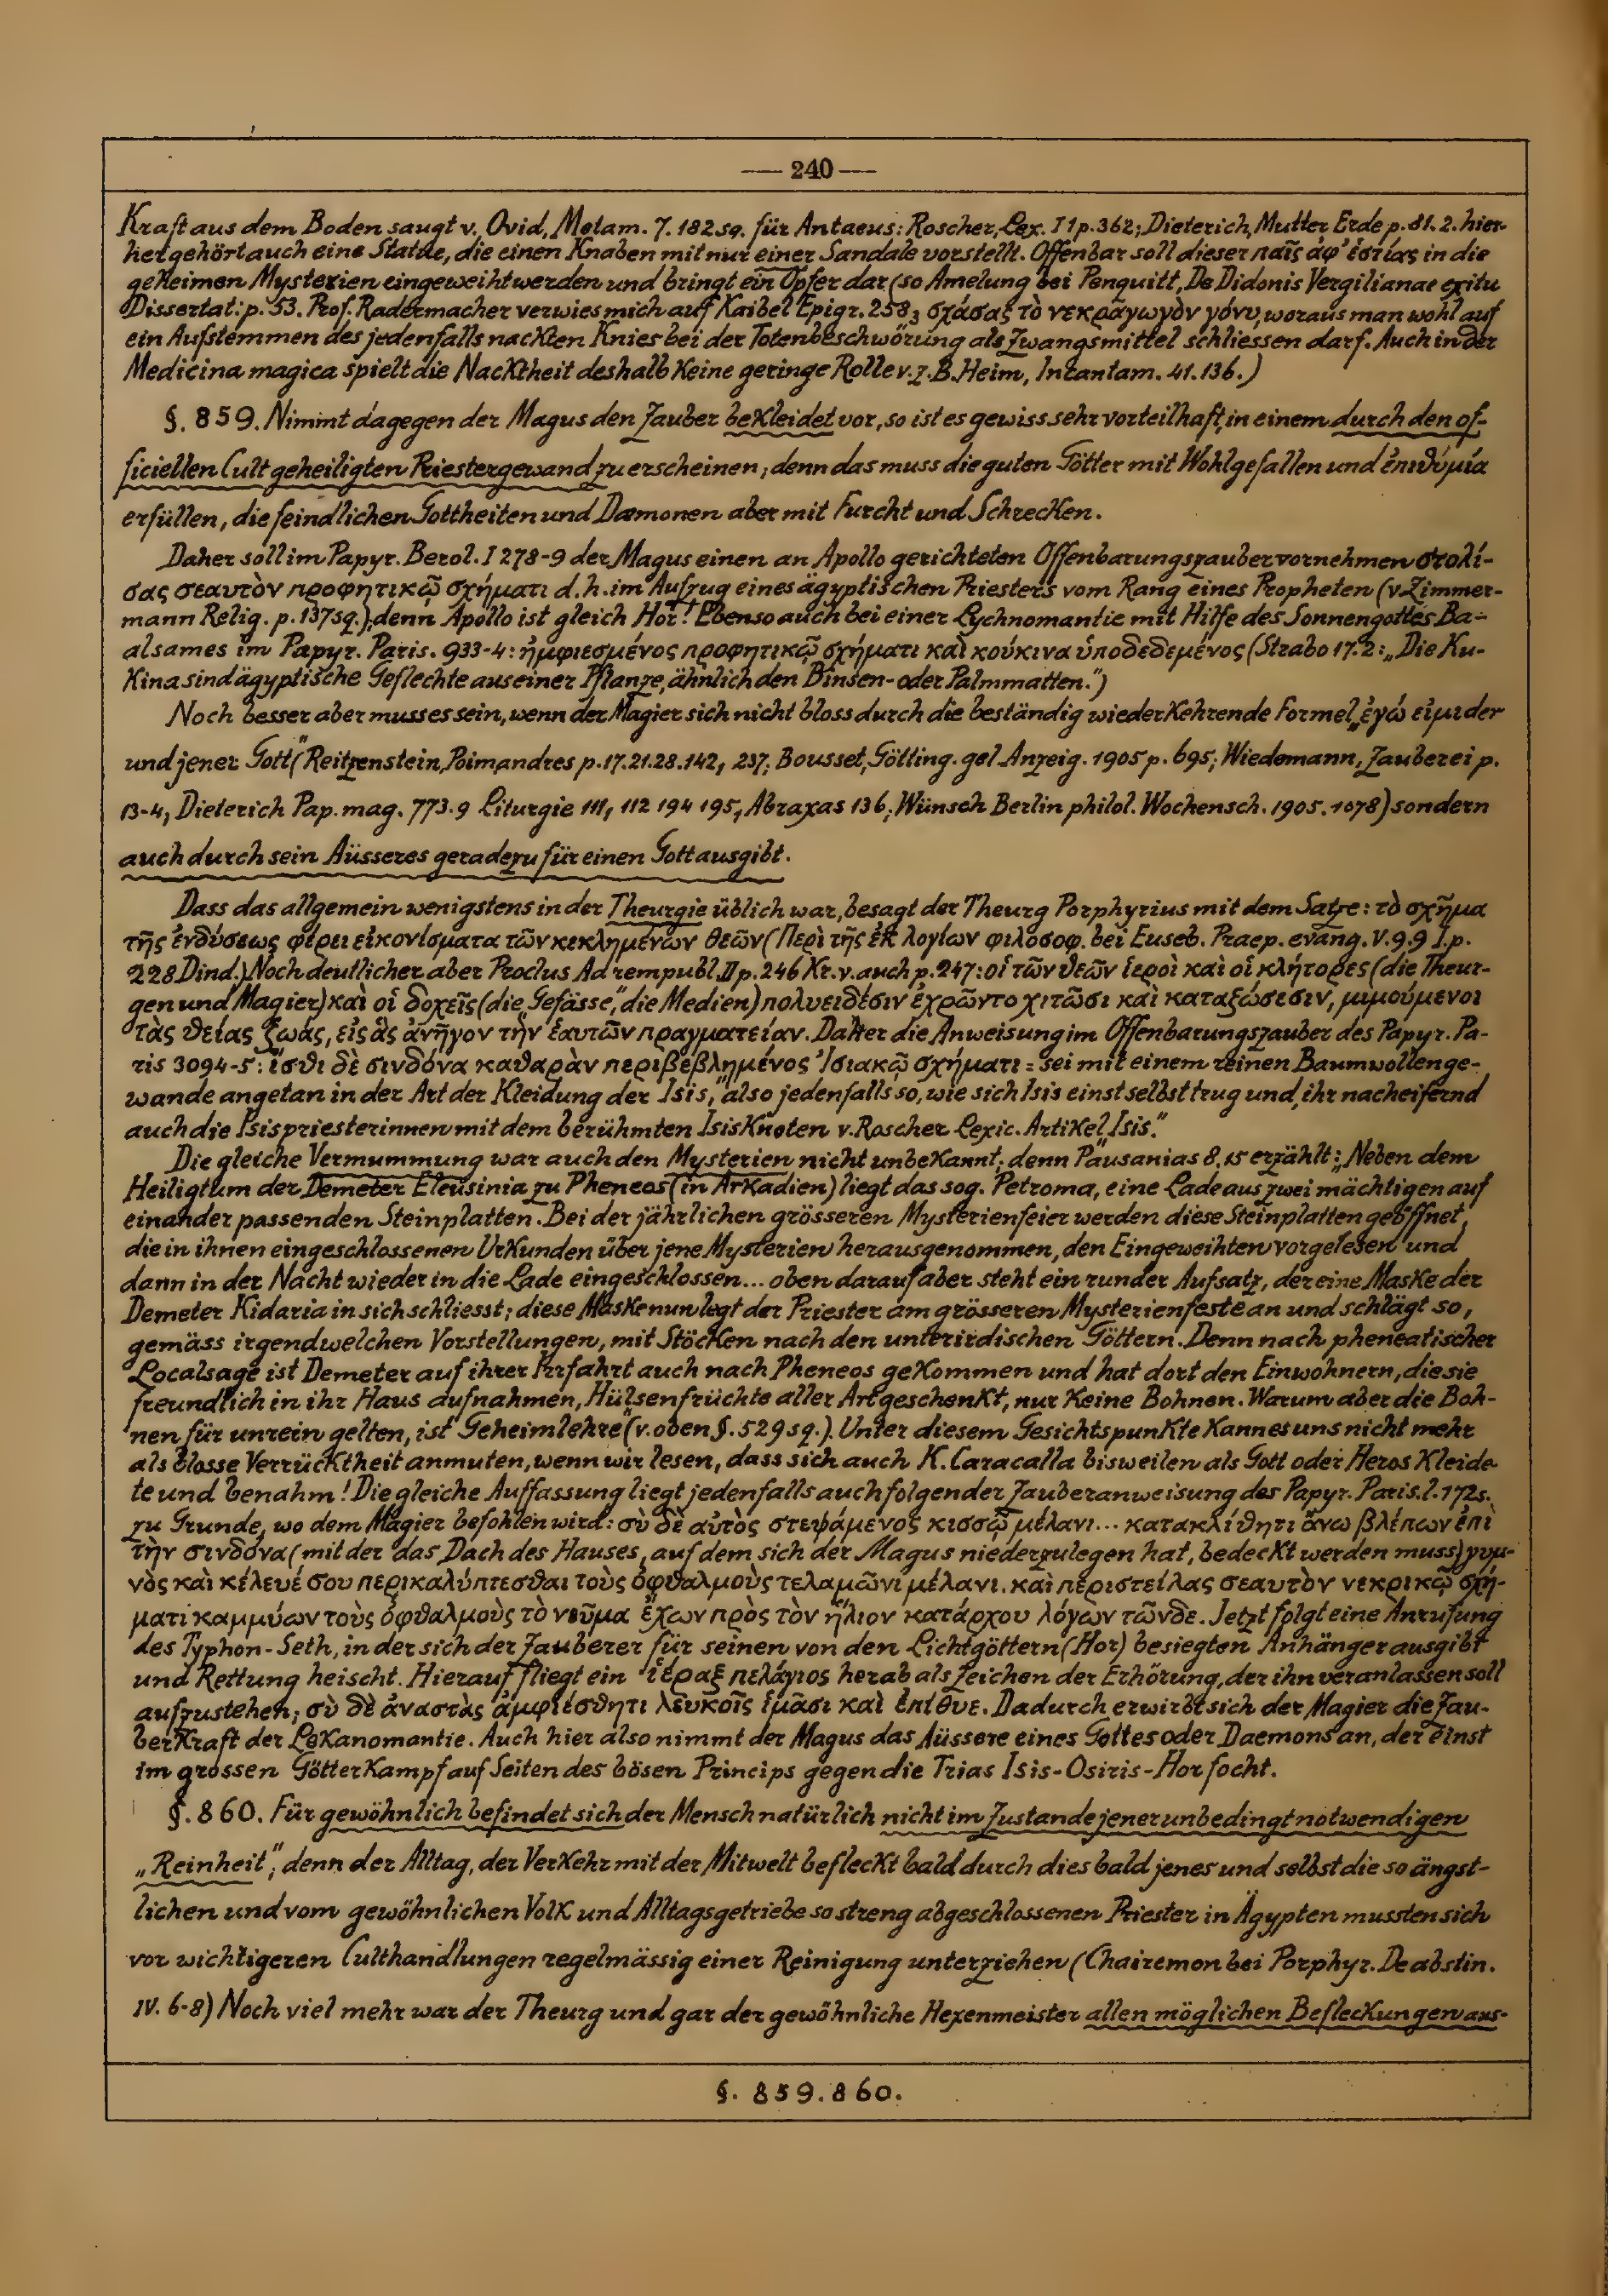 — 240 —
Kraft aus dem Boden saugt v. Ovid, Metam. 7. 182 sq. für Antaeus: Roscher, Lex. I 1 p. 362; Dieterich, Mutter Erde p. 81. 2. hier-
her gehört auch eine Statue, die einen Knaben mit nur einer Sandale vorstellt. Offenbar soll dieser παῖς ἀφ' ἑστίας in die
geheimen Mysterien eingeweiht werden und bringt ein Opfer dar (so Amelung bei Penquitt, De Didonis Vergilianae exitu
Dissertat: p. 53. Prof. Radermacher verwies mich auf Kaibel Epigr. 258₃ σχάσας τὸ νεκραγωγὸν γόνυ, woraus man wohl auf
ein Aufstemmen des jedenfalls nackten Knies bei der Totenbeschwörung als Zwangsmittel schliessen darf. Auch in der
Medicina magica spielt die Nacktheit deshalb keine geringe Rolle v. z. B. Heim, Incantam. 41. 136.)
§. 859. Nimmt dagegen der Magus den Zauber bekleidet vor, so ist es gewiss sehr vorteilhaft, in einem durch den of-
ficiellen Cult geheiligten Priestergewand zu erscheinen; denn das muss die guten Götter mit Wohlgefallen und ἐπιθύμία
erfüllen, die feindlichen Gottheiten und Dæmonen aber mit Furcht und Schrecken.
Daher soll im Papyr. Berol. I 278-9 der Magus einen an Apollo gerichteten Offenbarungszauber vornehmen στολί-
σας σεαυτὸν προφητικῷ σχήματι d. h. im Aufzug eines ägyptischen Priesters vom Rang eines Propheten (v. Zimmer-
mann Relig. p. 137 sq.); denn Apollo ist gleich Hor! Ebenso auch bei einer Lychnomantie mit Hilfe des Sonnengottes Ba-
alsames im Papyr. Paris. 933-4: ἠμφιεσμένος προφητικῷ σχήματι καὶ κούκινα ὑποδεδεμένος (Strabo 17. 2: „Die Ku-
kina sind ägyptische Geflechte aus einer Pflanze, ähnlich den Binsen- oder Palmmatten.")
Noch besser aber muss es sein, wenn der Magier sich nicht bloss durch die beständig wiederkehrende Formel „ἐγώ εἰμι der
und jener Gott" (Reitzenstein, Poimandres p. 17. 21. 28. 142, 237; Bousset, Götting. gel. Anzeig. 1905 p. 695; Wiedemann, Zauberei p.
13-4, Dieterich Pap. mag. 773. 9 Liturgie 111, 112 194 195, Abraxas 136; Wünsch Berlin philol. Wochensch. 1905. 1078) sondern
auch durch sein Aüsseres geradezu für einen Gott ausgibt.
Dass das allgemein wenigstens in der Theurgie üblich war, besagt der Theurg Porphyrius mit dem Satze: τὸ σχῆμα
τῆς ἐνδύσεως φέρει εἰκονίσματα τῶν κεκλημένων θεῶν (Περὶ τῆς ἐκ λογίων φιλόσοφ. bei Euseb. Praep. evang. V. 9. 9 I. p.
228 Dind.) Noch deutlicher aber Proclus Ad rempubl. II p. 246 Kr. v. auch p. 247: οἱ τῶν θεῶν ἱεροὶ καὶ οἱ κλήτορες (die Theur-
gen und Magier) καὶ οἱ δοχεῖς (die „Gefässe", die Medien) πολυειδέσιν ἐχρῶντο χιτῶσι καὶ καταζώσεσιν, μιμούμενοι
τὰς θείας ζωάς, εἰς ἃς ἀνῆγον τὴν ἑαυτῶν πραγματείαν. Daher die Anweisung im Offenbarungszauber des Papyr. Pa-
ris 3094-5: ἴσθι δὲ σινδόνα καθαρὰν περιβεβλημένος Ἰσιακῷ σχήματι = sei mit einem reinen Baumwollenge-
wande angetan in der Art der Kleidung der Isis," also jedenfalls so, wie sich Isis einst selbst trug und, ihr nacheifernd
auch die Isispriesterinnen mit dem berühmten Isisknoten v. Roscher Lexic. Artikel „Isis."
Die gleiche Vermummung war auch den Mysterien nicht unbekannt; denn Pausanias 8. 15 erzählt: „Neben dem
Heiligtum der Demeter Eleusinia zu Pheneos (in Arkadien) liegt das sog. Petroma, eine Lade aus zwei mächtigen auf
einander passenden Steinplatten. Bei der jährlichen grösseren Mysterienfeier werden diese Steinplatten geöffnet,
die in ihnen eingeschlossenen Urkunden über jene Mysterien herausgenommen, den Eingeweihten vorgelesen und
dann in der Nacht wieder in die Lade eingeschlossen... oben darauf aber steht ein runder Aufsatz, der eine Maske der
Demeter Kidaria in sich schliesst; diese Maske nun legt der Priester am grösseren Mysterienfeste an und schlägt so,
gemäss irgendwelchen Vorstellungen, mit Stöcken nach den unterirdischen Göttern. Denn nach pheneatischer
Localsage ist Demeter auf ihrer Irrfahrt auch nach Pheneos gekommen und hat dort den Einwohnern, die sie
freundlich in ihr Haus aufnahmen, Hülsenfrüchte aller Art geschenkt, nur keine Bohnen. Warum aber die Boh-
nen für unrein gelten, ist Geheimlehre" (v. oben §. 529 sq.). Unter diesem Gesichtspunkte kann es uns nicht mehr
als blosse Verrücktheit anmuten, wenn wir lesen, dass sich auch K. Caracalla bisweilen als Gott oder Heros kleide-
te und benahm! Die gleiche Auffassung liegt jedenfalls auch folgender Zauberanweisung des Papyr. Paris. l. 172 s.
zu Grunde, wo dem Magier befohlen wird: σὺ δὲ αὐτὸς στεψάμενος κισσῷ μέλανι... κατακλίθητι ἄνω βλέπων ἐπὶ
τὴν σινδόνα (mit der das Dach des Hauses, auf dem sich der Magus niederzulegen hat, bedeckt werden muss) γυμ-
νὸς καὶ κέλευέ σου περικαλύπτεσθαι τοὺς ὀφθαλμοὺς τελαμῶνι μέλανι. καὶ περιστείλας σεαυτὸν νεκρικῷ σχή-
ματι καμμύων τοὺς ὀφθαλμοὺς τὸ νεῦμα ἔχων πρὸς τὸν ἥλιον κατάρχου λόγων τῶνδε. Jetzt folgt eine Anrufung
des Typhon-Seth, in der sich der Zauberer für seinen von den Lichtgöttern (Hor) besiegten Anhänger ausgibt
und Rettung heischt. Hierauf fliegt ein ἱέραξ πελάγιος herab als Zeichen der Erhörung, der ihn veranlassen soll
aufzustehen; σὺ δὲ ἀναστὰς ἀμφιέσθητι λευκοῖς εἵμασι καὶ ἐπίθυε. Dadurch erwirbt sich der Magier die Zau-
berkraft der Lekanomantie. Auch hier also nimmt der Magus das Aüssere eines Gottes oder Daemons an, der einst
im grossen Götterkampf auf Seiten des bösen Princips gegen die Trias Isis-Osiris-Hor focht.
§. 860. Für gewöhnlich befindet sich der Mensch natürlich nicht im Zustande jener unbedingt notwendigen
„Reinheit"; denn der Alltag, der Verkehr mit der Mitwelt befleckt bald durch dies bald jenes und selbst die so ängst-
lichen und vom gewöhnlichen Volk und Alltagsgetriebe so streng abgeschlossenen Priester in Ägypten mussten sich
vor wichtigeren Culthandlungen regelmässig einer Reinigung unterziehen (Chairemon bei Porphyr. De abstin.
IV. 6-8) Noch viel mehr war der Theurg und gar der gewöhnliche Hexenmeister allen möglichen Befleckungen aus-
§. 859. 860.